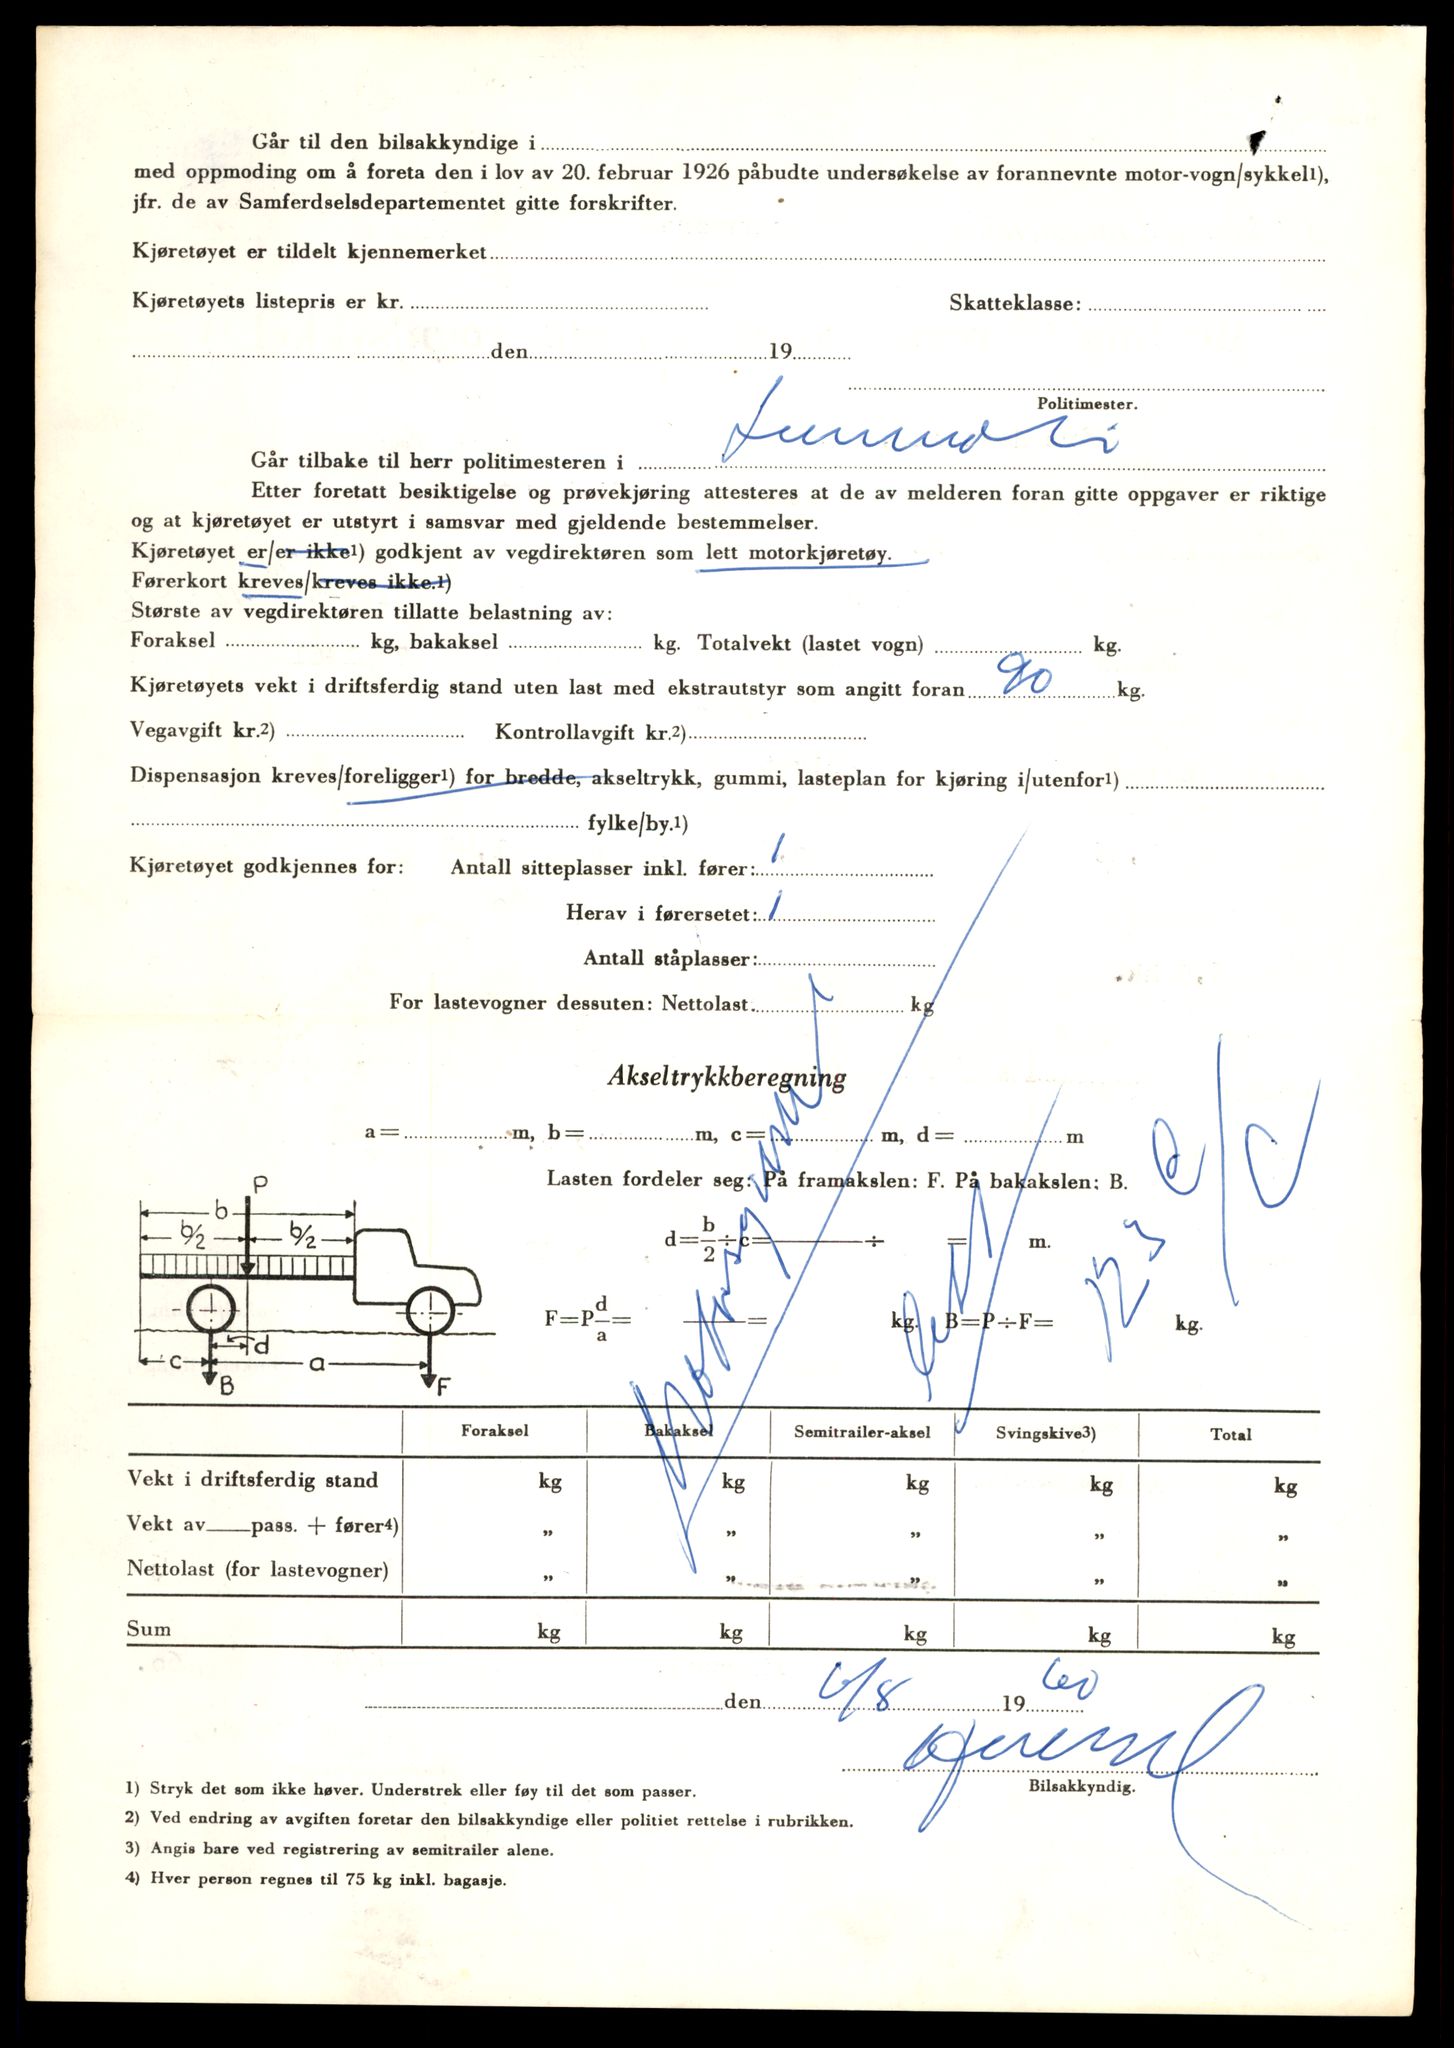 Går til den bilsakkyndige i
med oppmoding om å foreta den i lov av 20. februar 1926 påbudte undersøkelse av forannevnte motor-vogn/sykkel1),
jfr. de av Samferdselsdepartementet gitte forskrifter.
Kjøretøyet er tildelt kjennemerket
Kjøretøyets listepris er kr. Skatteklasse:
den 19
Politimester.
Går tilbake til herr politimesteren i
Etter foretatt besiktigelse og prøvekjøring attesteres at de av melderen foran gitte oppgaver er riktige
og at kjøretøyet er utstyrt i samsvar med gjeldende bestemmelser.
Kjøretøyet er/er ikke1) godkjent av vegdirektøren som lett motorkjøretøy.
Førerkort kreves/kreves ikke.1)
Største av vegdirektøren tillatte belastning av:
Foraksel kg, bakaksel kg. Totalvekt (lastet vogn) kg.
Kjøretøyets vekt i driftsferdig stand uten last med ekstrautstyr som angitt foran 90 kg.
Vegavgift kr.2) Kontrollavgift kr.2)
Dispensasjon kreves/foreligger1) for bredde, akseltrykk, gummi, lasteplan for kjøring i/utenfor1)
fylke/by.1)
Kjøretøyet godkjennes for: Antall sitteplasser inkl. fører: 1
Herav i førersetet: 1
Antall ståplasser:
For lastevogner dessuten: Nettolast kg
Akseltrykkberegning
a= m, b= m, c= m, d= m
Lasten fordeler seg: På framakslen: F. På bakakslen: B.
d=b/2÷c= ÷ = m.
F=P d/a= = kg. B=P÷F= kg.
P
b
b/2 b/2
d
c a
B F
Foraksel Bakaksel Semitrailer-aksel Svingskive3) Total
Vekt i driftsferdig stand kg kg kg kg kg
Vekt av pass. + fører4) „ „ „ „ „
Nettolast (for lastevogner) „ „ „ „ „
Sum kg kg kg kg kg
den 6/8 1960
Bilsakkyndig.
1) Stryk det som ikke høver. Understrek eller føy til det som passer.
2) Ved endring av avgiften foretar den bilsakkyndige eller politiet rettelse i rubrikken.
3) Angis bare ved registrering av semitrailer alene.
4) Hver person regnes til 75 kg inkl. bagasje.